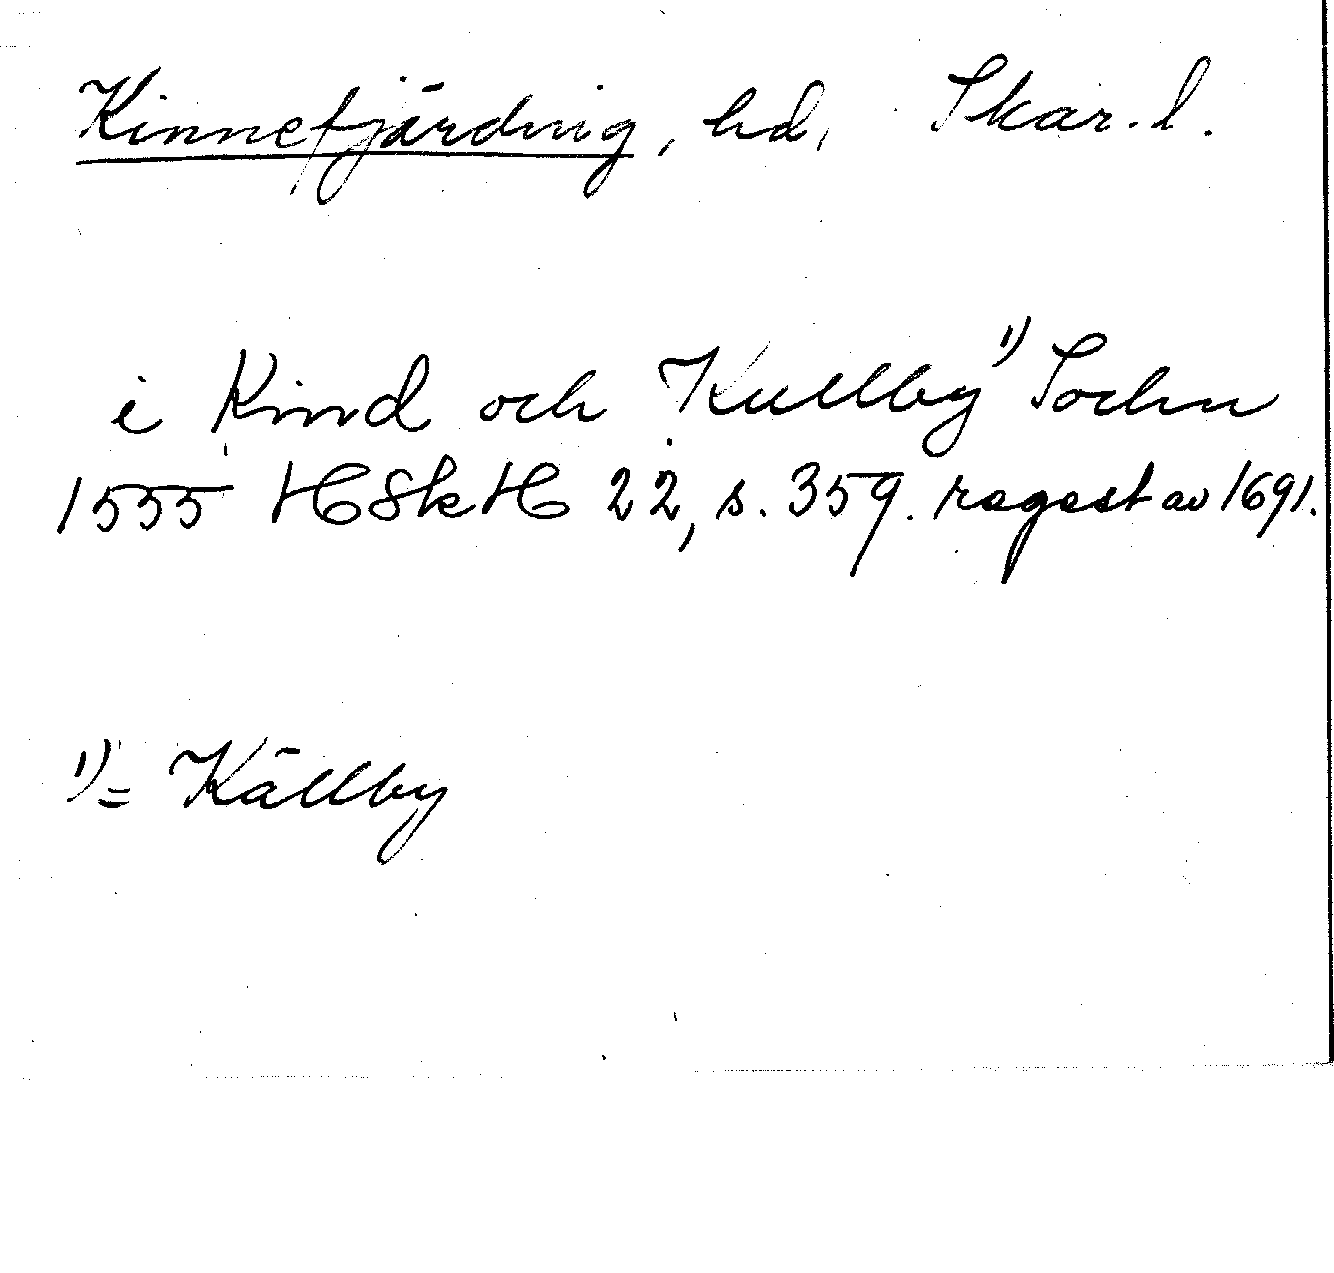 Kinnefjärding, hd, Skar. l.
i Kind och Kullby¹⁾ Sochn
1555 HSkH 22, s. 359. regest av 1691.
¹⁾= Källby